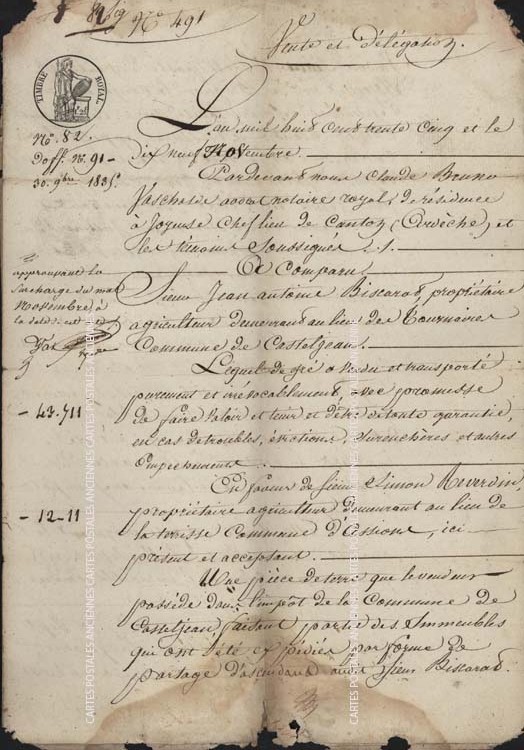 Nro 491
Vente et délégation.
TIMBRE ROYAL
No. 82.
Doss. No. 91 -
30. 9bre 1835.
L'an mil huit cent trente cinq et le
dix neuf Novembre.
Pardevant nous Claude Bruno
avocat notaire royal, de résidence
à Joyeuse Chef lieu de Canton (Ardèche) et
les témoins Soussignés
A Comparu
approuvant la
surcharge du mot
Novembre à
la date
Sieur Jean antoine Biscarat, propriétaire
agriculteur demeurant au lieu des Tournaires
Commune de Casteljeau.
Lequel de gré a vendu et transporté
purement et irrévocablement, avec promesse
de faire valoir et tenir et d'être de toute garantie,
en cas de troubles, évictions, surenchères et autres
Empêchements.
- 43.711
En faveur de sieur Simon Reverdin,
propriétaire agriculteur demeurant au lieu de
la Commune d'Assions, ici
présent et acceptant.
- 12-11
Une pièce de terre que le vendeur
possède dans l'impôt de la Commune de
Casteljeau, faisant partie des Immeubles
qui ont été expédiés par forme de
partage d'ascendant audit Sieur Biscarat.
CARTES POSTALES ANCIENNES CARTES POSTALES ANCIENNES CARTES POSTALES ANCIENNES
CARTES POSTALES ANCIENNES CARTES POSTALES ANCIENNES CARTES POSTALES ANCIENNES